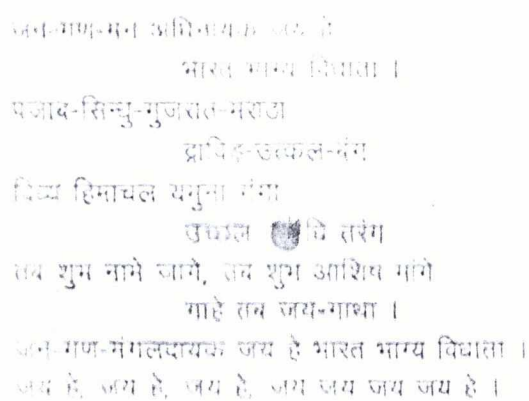 जन-गण-मन अधिनायक जय हे
भारत भाग्य विधाता ।
पंजाब-सिन्धु-गुजरात-मराठा
द्राविड़-उत्कल-बंग
विंध्य हिमाचल यमुना गंगा
उच्छल तरंग
तब शुभ नामे जागे, तब शुभ आशिष मांगे
गाहे तब जय-गाथा ।
जन-गण-मंगलदायक जय हे भारत भाग्य विधाता ।
जय हे, जय हे, जय हे, जय जय जय जय हे ।